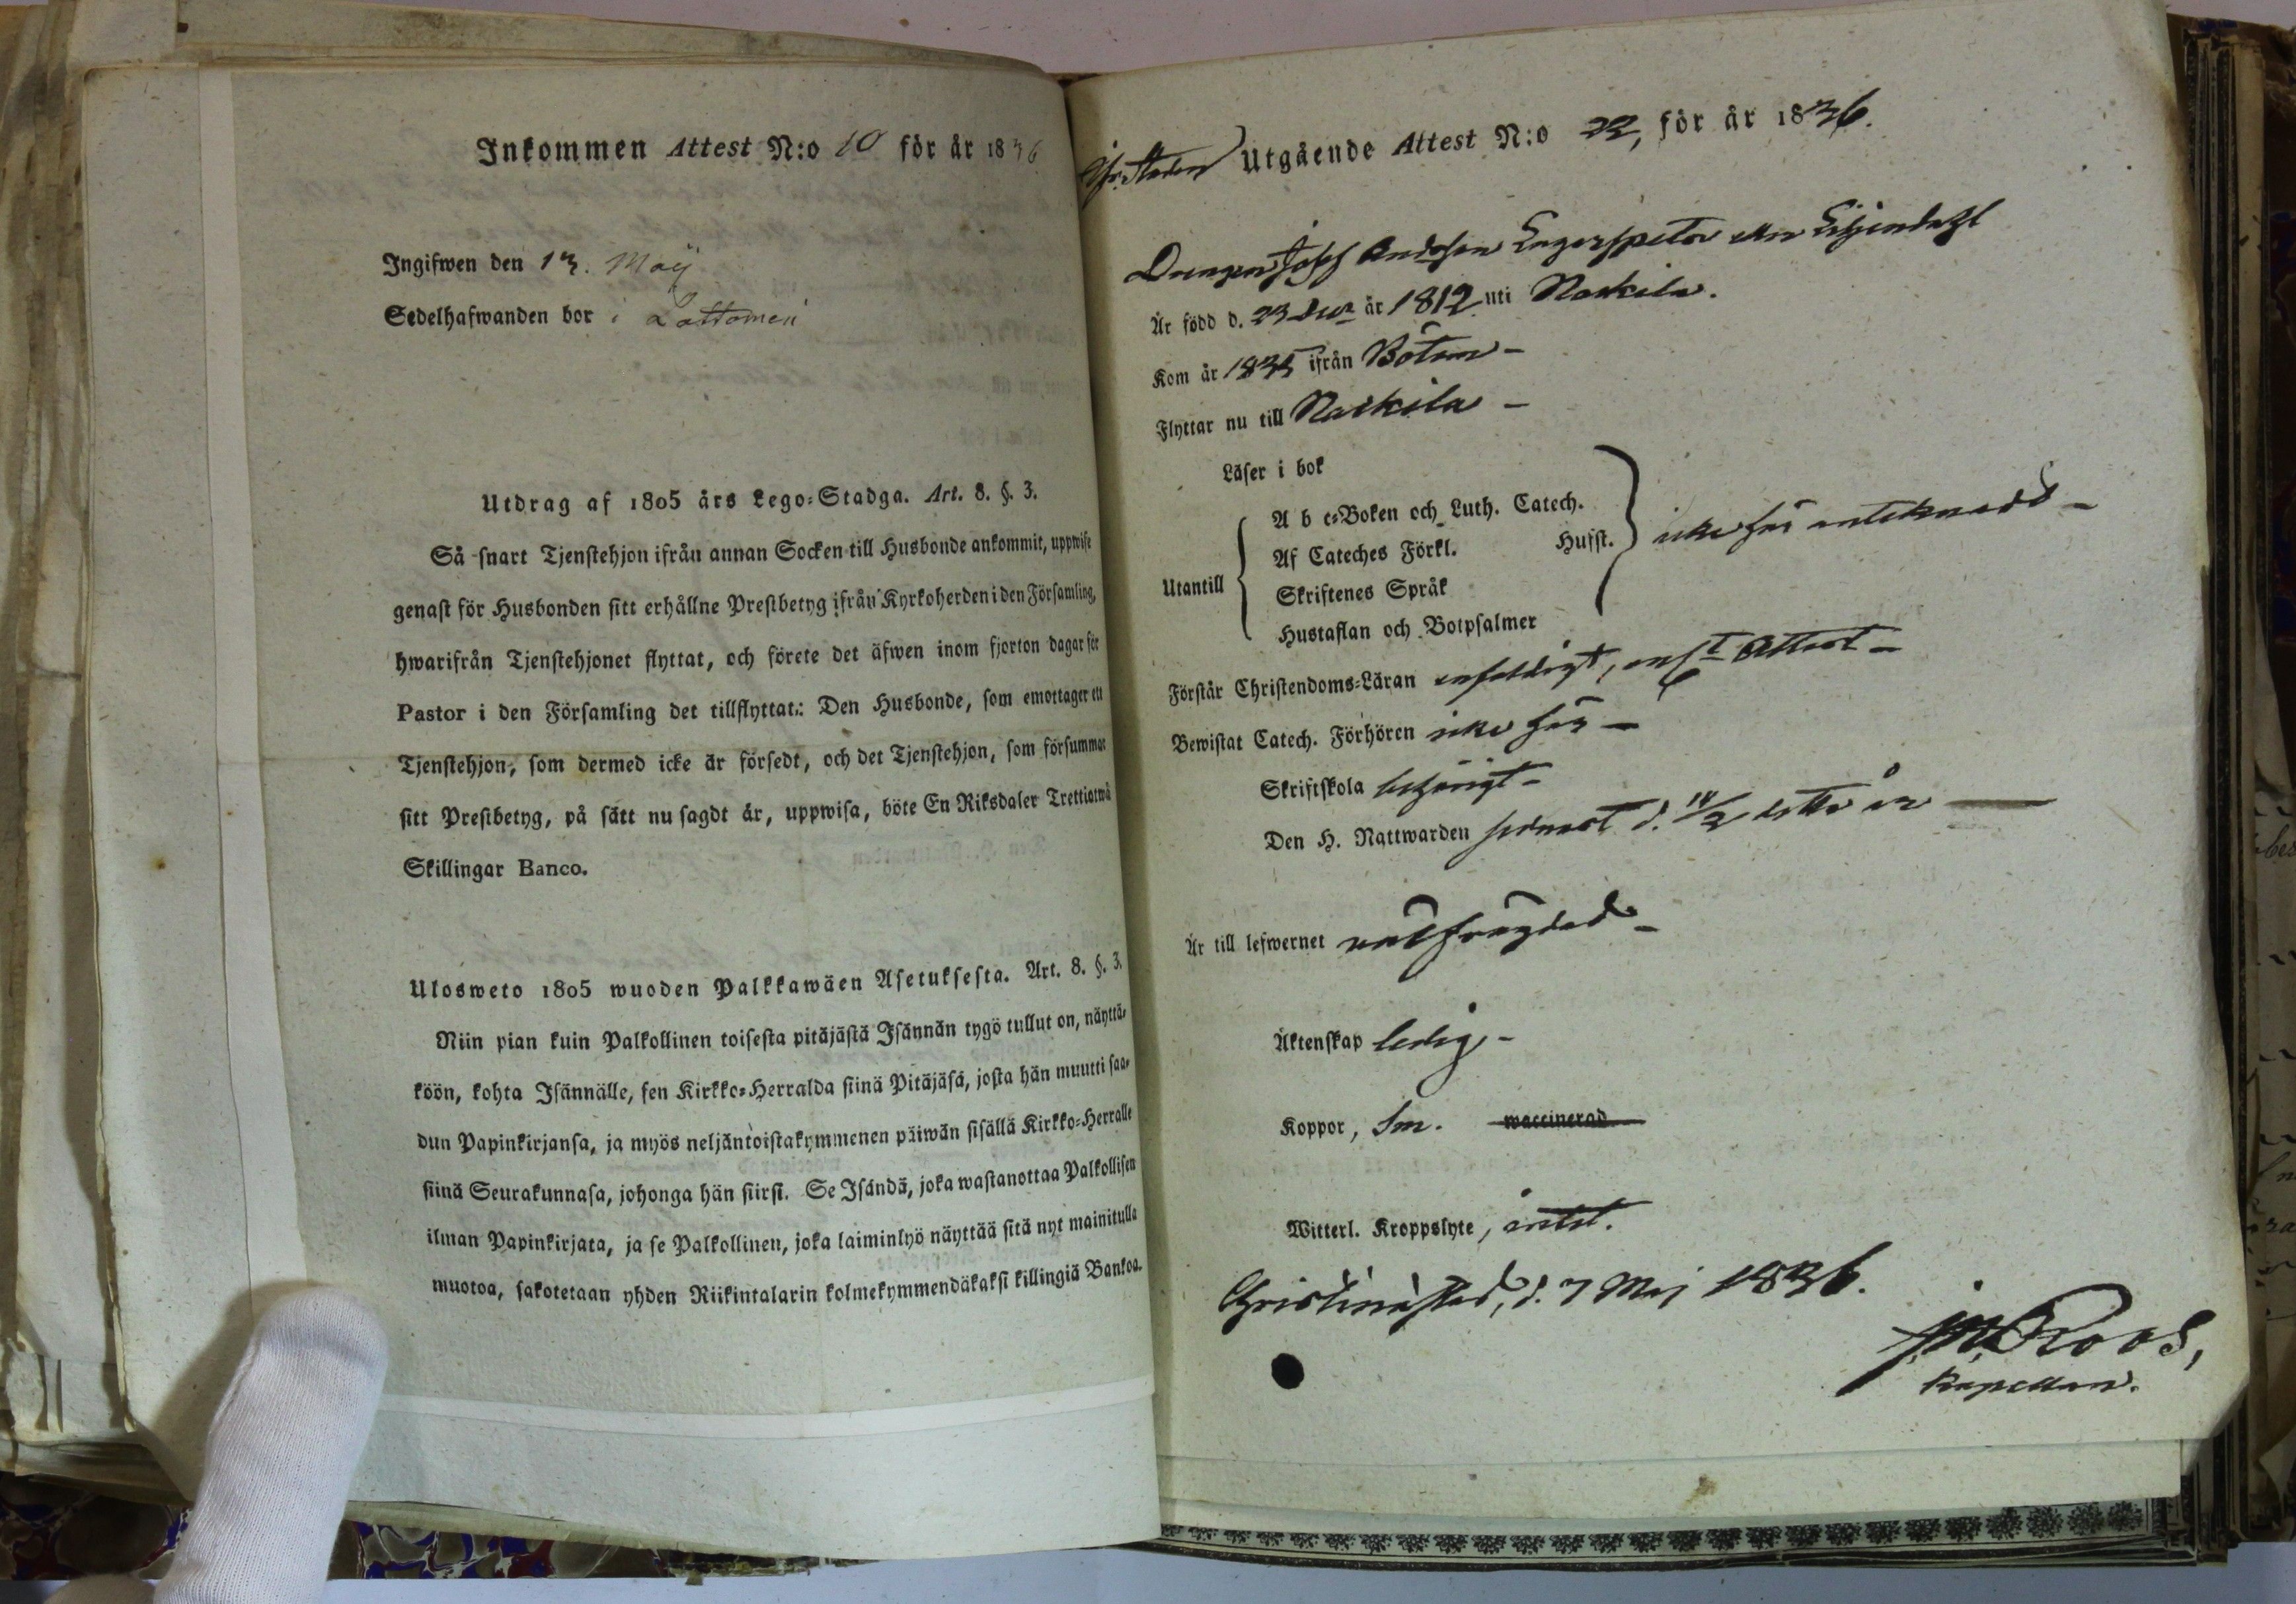 Inkommen Attest N:o 10 för år 1836
Ingifwen den 13. Maij
Sedelhafwanden bor i Lattomeri
Utdrag af 1805 års Lego-Stadga. Art. 8. §. 3.
Så snart Tjenstehjon ifrån annan Socken till Husbonde ankommit, uppwise
genast för Husbonden sitt erhållne Prestbetyg ifrån Kyrkoherden i den Församling,
hwarifrån Tjenstehjonet flyttat, och förete det äfwen inom fjorton dagar för
Pastor i den Församling det tillflyttat.: Den Husbonde, som emottager ett
Tjenstehjon, som dermed icke är försedt, och det Tjenstehjon, som försummar
sitt Prestbetyg, på sätt nu sagdt är, uppwisa, böte En Riksdaler Trettiotwå
Skillingar Banco.
Ulosweto 1805 wuoden Palkkawäen Asetuksesta. Art. 8. §. 3.
Niin pian kuin Palkollinen toisesta pitäjästä Isännän tygö tullut on, näyttä-
köön, kohta Isännälle, sen Kirkko-Herralda siinä Pitäjäsä, josta hän muutti saa-
dun Papinkirjansa, ja myös neljäntoistakymmenen päiwän sisällä Kirkko-Herralle
siinä Seurakunnasa, johonga hän siirsi. Se Isändä, joka wastanottaa Palkollisen
ilman Papinkirjata, ja se Palkollinen, joka laiminlyö näyttää sitä nyt mainitulla
muotoa, sakotetaan yhden Riikintalarin kolmekymmendäkaksi killingiä Bankoa.
Utgående Attest N:o 22, för år 1836.
Drengen Josef Andersson eller Liljendahl
Är född d. 23 Dec. år 1812 uti Nackila.
Kom år 1835 ifrån Bötom –
Flyttar nu till Nackila –
Läser i bok
A b c-Boken och Luth. Catech.
Af Cateches Förkl. Husst. icke här antecknadt –
Utantill
Skriftenes Språk
Hustaflan och Botpsalmer
Förstår Christendoms-Läran enfaldigt, enl. Attest –
Bewistat Catech. Förhören icke här –
Skriftskola behörigt –
Den H. Nattwarden sednast d. 14/2 detta år
Är till lefwernet wälfrägdad –
Äktenskap ledig, –
Koppor, Sm. waccinerad
Witterl. Kroppslyte, intet.
Christinæstad, d. 7 Maj 1836.
Roos,
Kapellan.